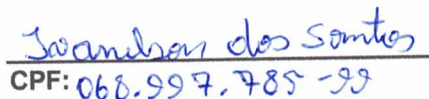 Ivanilson dos Santos
CPF: 068.997.785-99